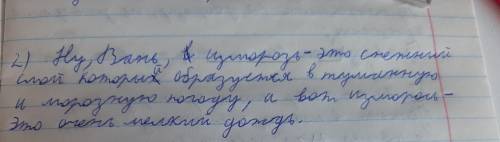 2) Ну, Вань, изморозь - это снежний
слой который образуется в туманную
и морозную погоду, а вот изморось-
это очень мелкий дождь.